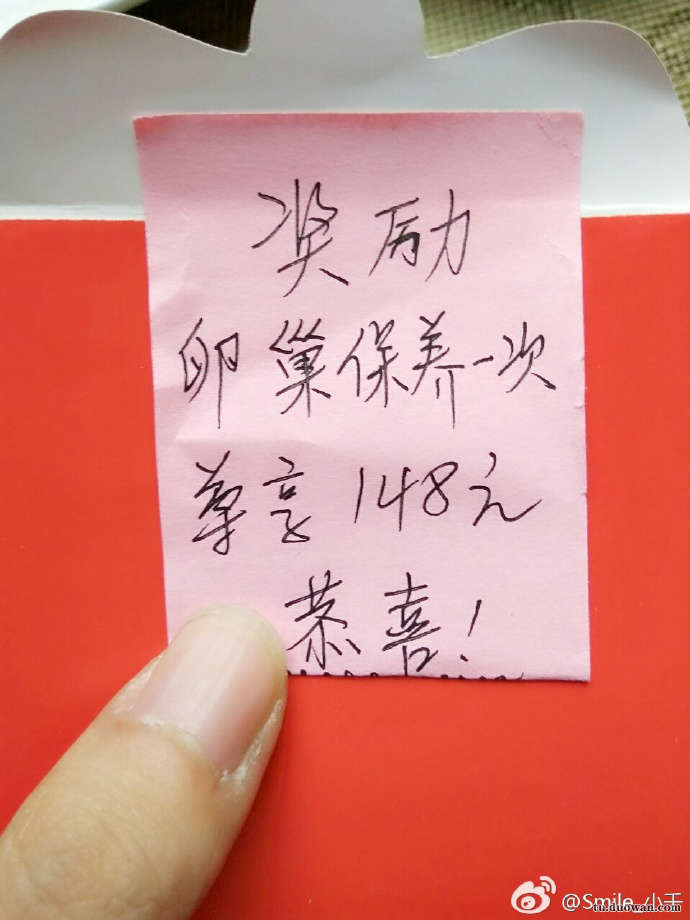 奖励
卵巢保养一次
尊享148元
恭喜!
@Smile_小王
tu.duowan.com